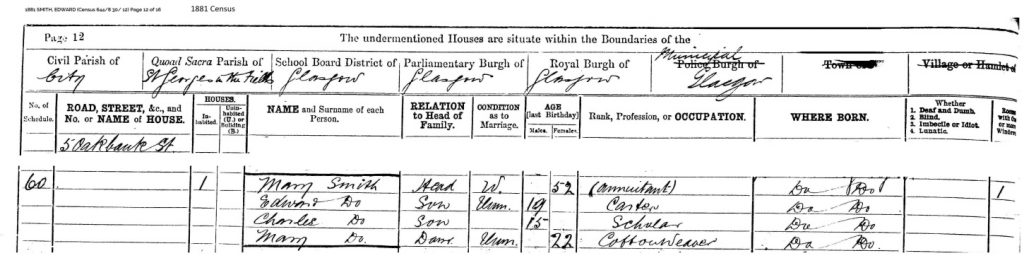 1881 SMITH, EDWARD (Census 644/8 30/ 12) Page 12 of 16 1881 Census
Page 12 The undermentioned Houses are situate within the Boundaries of the
Civil Parish of Quoad Sacra Parish of School Board District of Parliamentary Burgh of Royal Burgh of Municipal Police Burgh of Town Village or Hamlet o
City St Georges in the Fields Glasgow Glasgow Glasgow Glasgow
No. of Schedule. ROAD, STREET, &c., and No. or NAME of HOUSE. HOUSES. Inhabited. Uninhabited (U.) or Building (B.) NAME and Surname of each Person. RELATION to Head of Family. CONDITION as to Marriage. AGE [last Birthday] Males. Females. Rank, Profession, or OCCUPATION. WHERE BORN. Whether 1. Deaf and Dumb. 2. Blind. 3. Imbecile or Idiot. 4. Lunatic. Roo with o or mor Window
5 Oakbank St.
60 1 Mary Smith Head W. 52 (annuitant) Do Do 1
Edward Do Son Unm. 19 Carter Do Do
Charles Do Son 15 Scholar Do Do
Mary Do. Daur Unm. 22 Cotton Weaver Do Do.